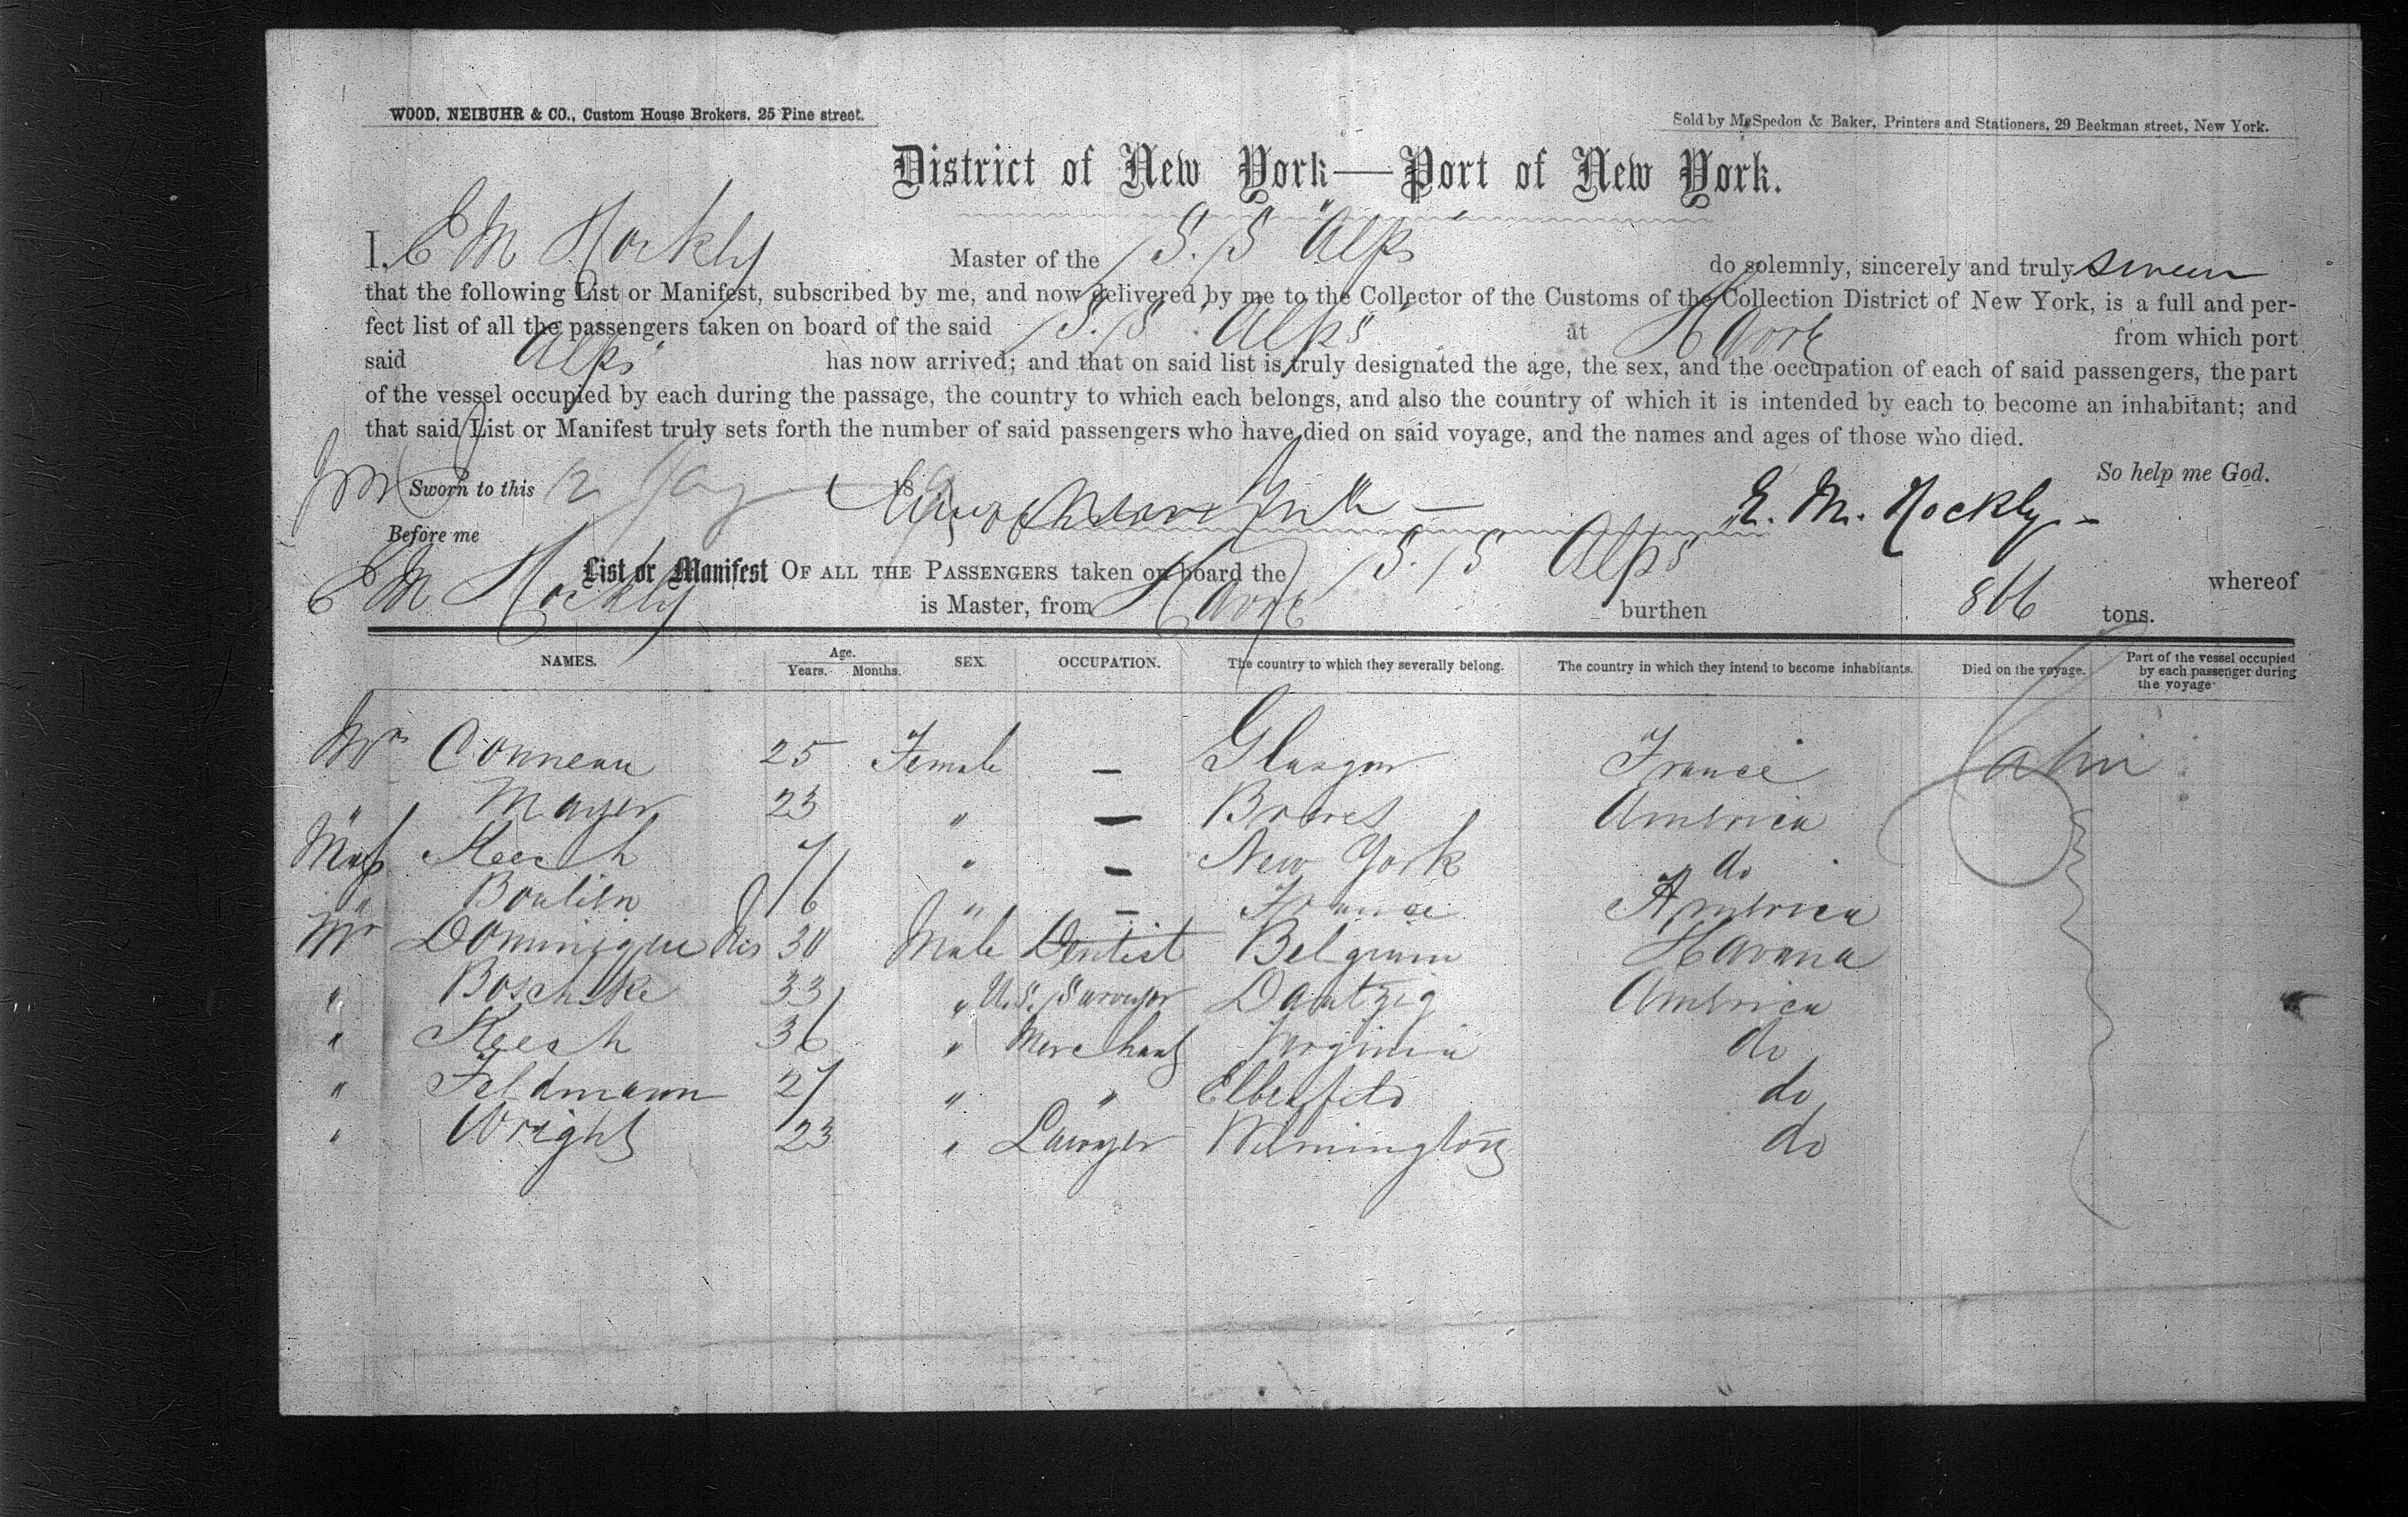 WOOD, NEIBUHR & CO., Custom House Brokers, 25 Pine street.
Sold by McSpedon & Baker, Printers and Stationers, 29 Beekman street, New York.
District of New York—Port of New York.
I, E M Hockly Master of the S.S "Alps do solemnly, sincerely and truly swear
that the following List or Manifest, subscribed by me, and now delivered by me to the Collector of the Customs of the Collection District of New York, is a full and per-
fect list of all the passengers taken on board of the said S.S. "Alps" at Havre from which port
said Alps has now arrived; and that on said list is truly designated the age, the sex, and the occupation of each of said passengers, the part
of the vessel occupied by each during the passage, the country to which each belongs, and also the country of which it is intended by each to become an inhabitant; and
that said List or Manifest truly sets forth the number of said passengers who have died on said voyage, and the names and ages of those who died.
So help me God.
Sworn to this 12 185
E. M. Hockly
Before me
List or Manifest OF ALL THE PASSENGERS taken on board the S.S Alps whereof
E M Hockly is Master, from Havre burthen 866 tons.
NAMES. Age. Years. Months. SEX. OCCUPATION. The country to which they severally belong. The country in which they intend to become inhabitants. Died on the voyage. Part of the vessel occupied by each passenger during the voyage
Mrs Conneau 25 Female — Glasgow France Cabin
" Mayer 23 " — America
Keech 7 " — New York do
" Boulien 16 " — France America
Mr Dominique 30 Male Dentist Belgium Havana
" Boschke 33 " U.S. Surveyor Dantzig America
" Keech 36 " Merchant Virginia do
" Feldmann 27 " " Elberfeld do
" Wright 23 " Lawyer Wilmington do